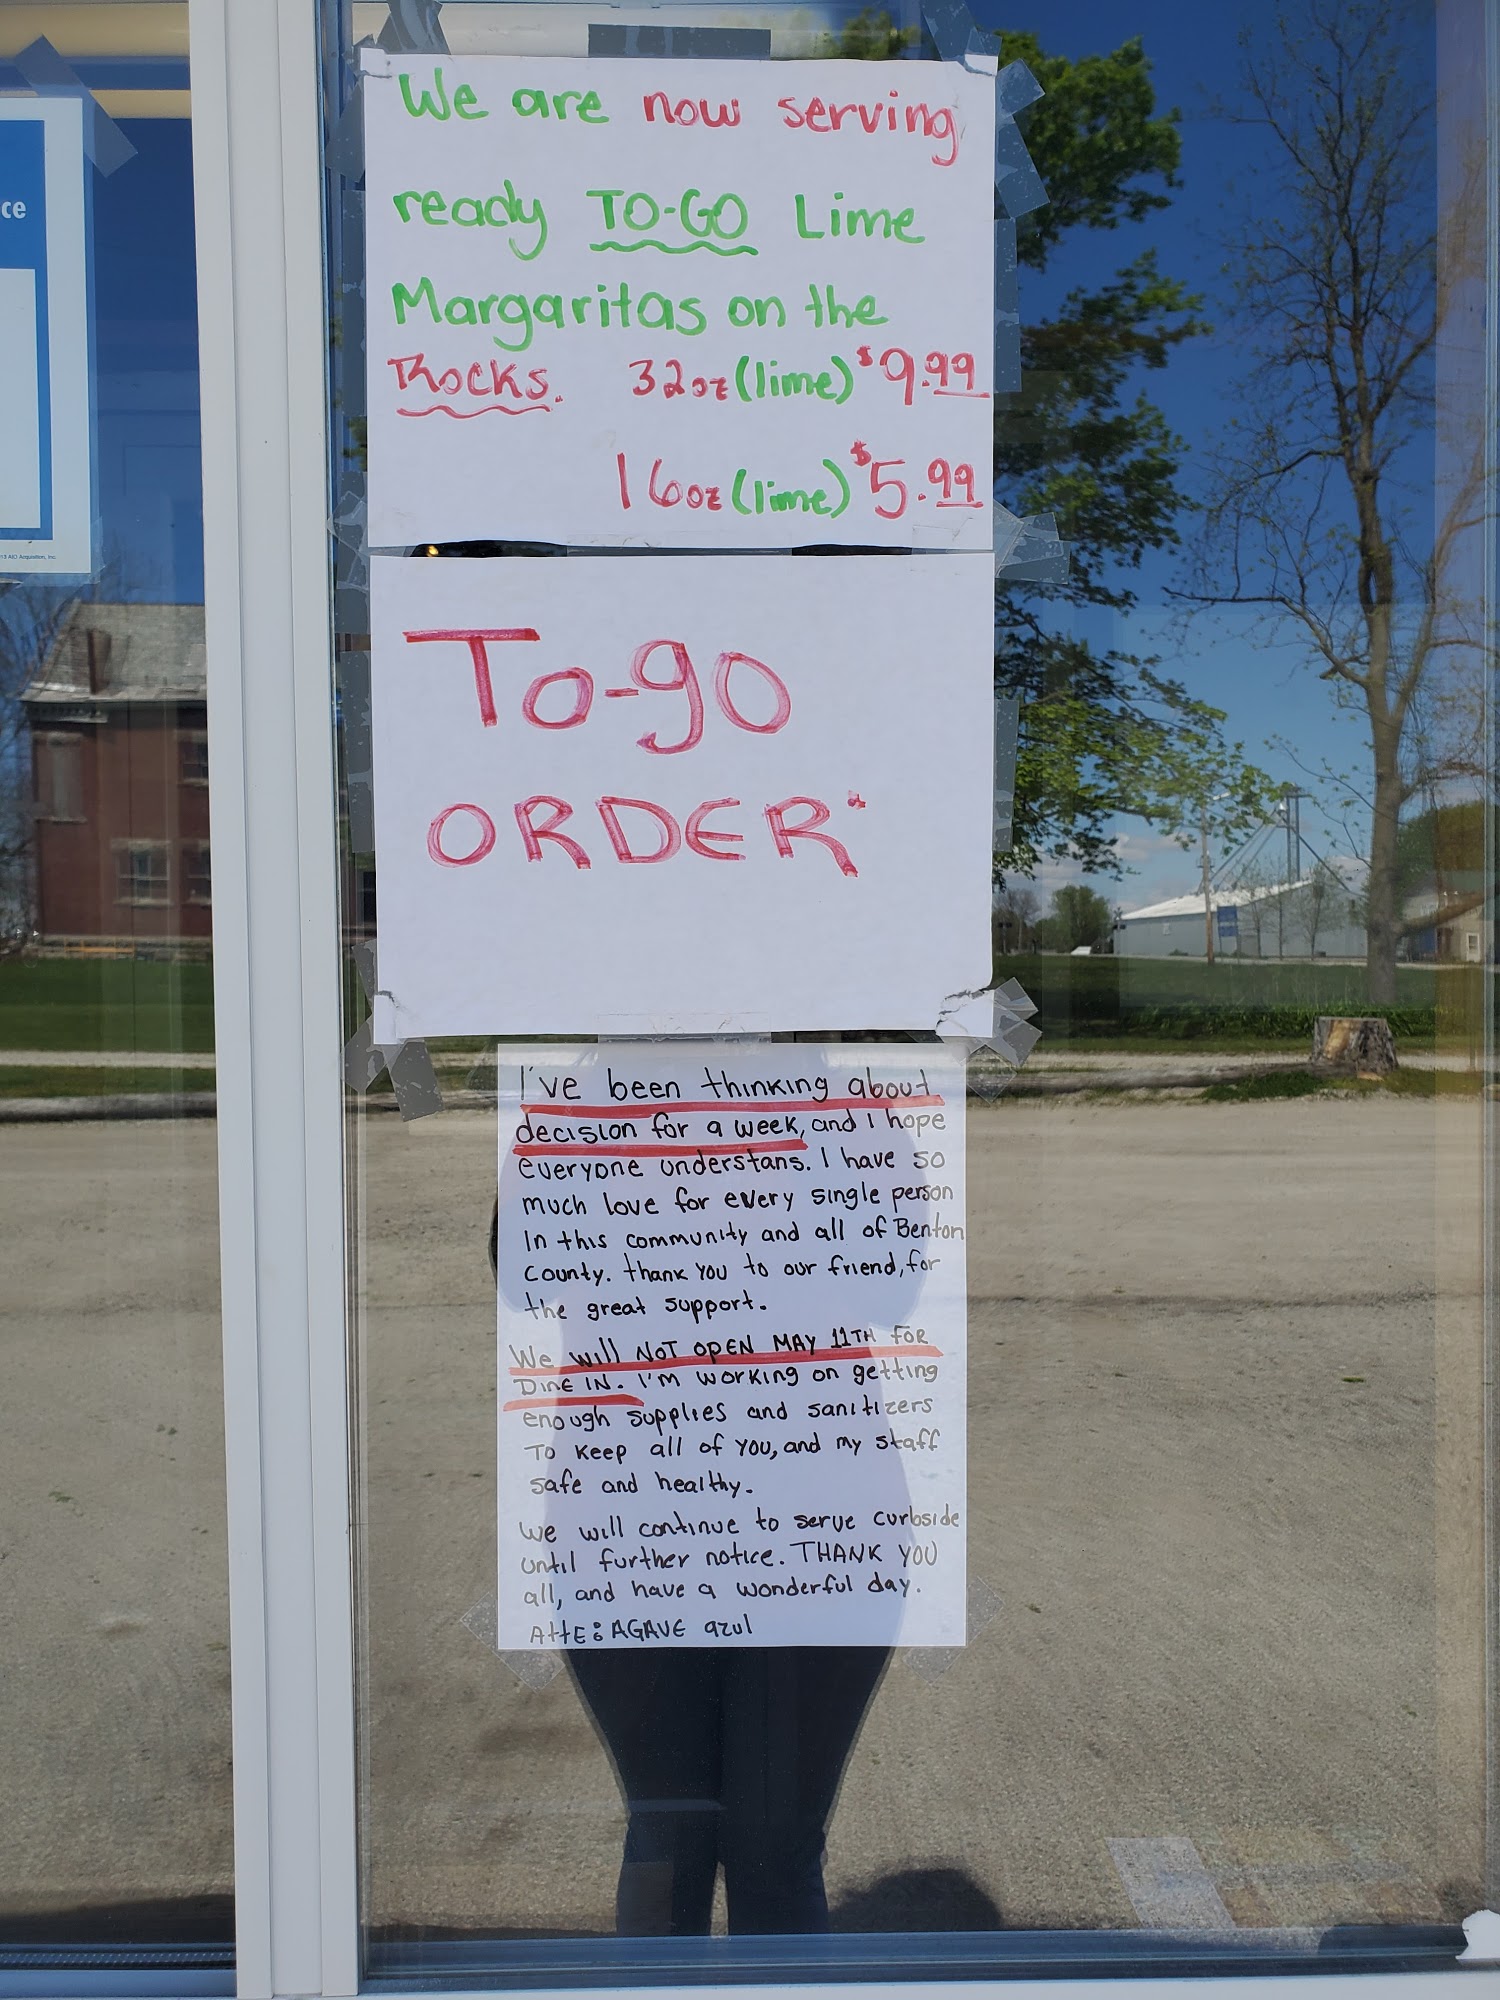 ce
13 AIO Acquisition, Inc.
We are now serving
ready TO-GO Lime
Margaritas on the
Rocks. 32oz (lime) $9.99
16oz (lime) $5.99
To-go
ORDER
I've been thinking about
decision for a week, and I hope
everyone understans. I have so
much love for every single person
In this community and all of Benton
County. thank you to our friend, for
the great support.
We will NOT OPEN MAY 11TH FOR
DINE IN. I'm working on getting
enough supplies and sanitizers
To keep all of you, and my staff
safe and healthy.
we will continue to serve curbside
until further notice. THANK YOU
all, and have a wonderful day.
AttE: AGAVE azul